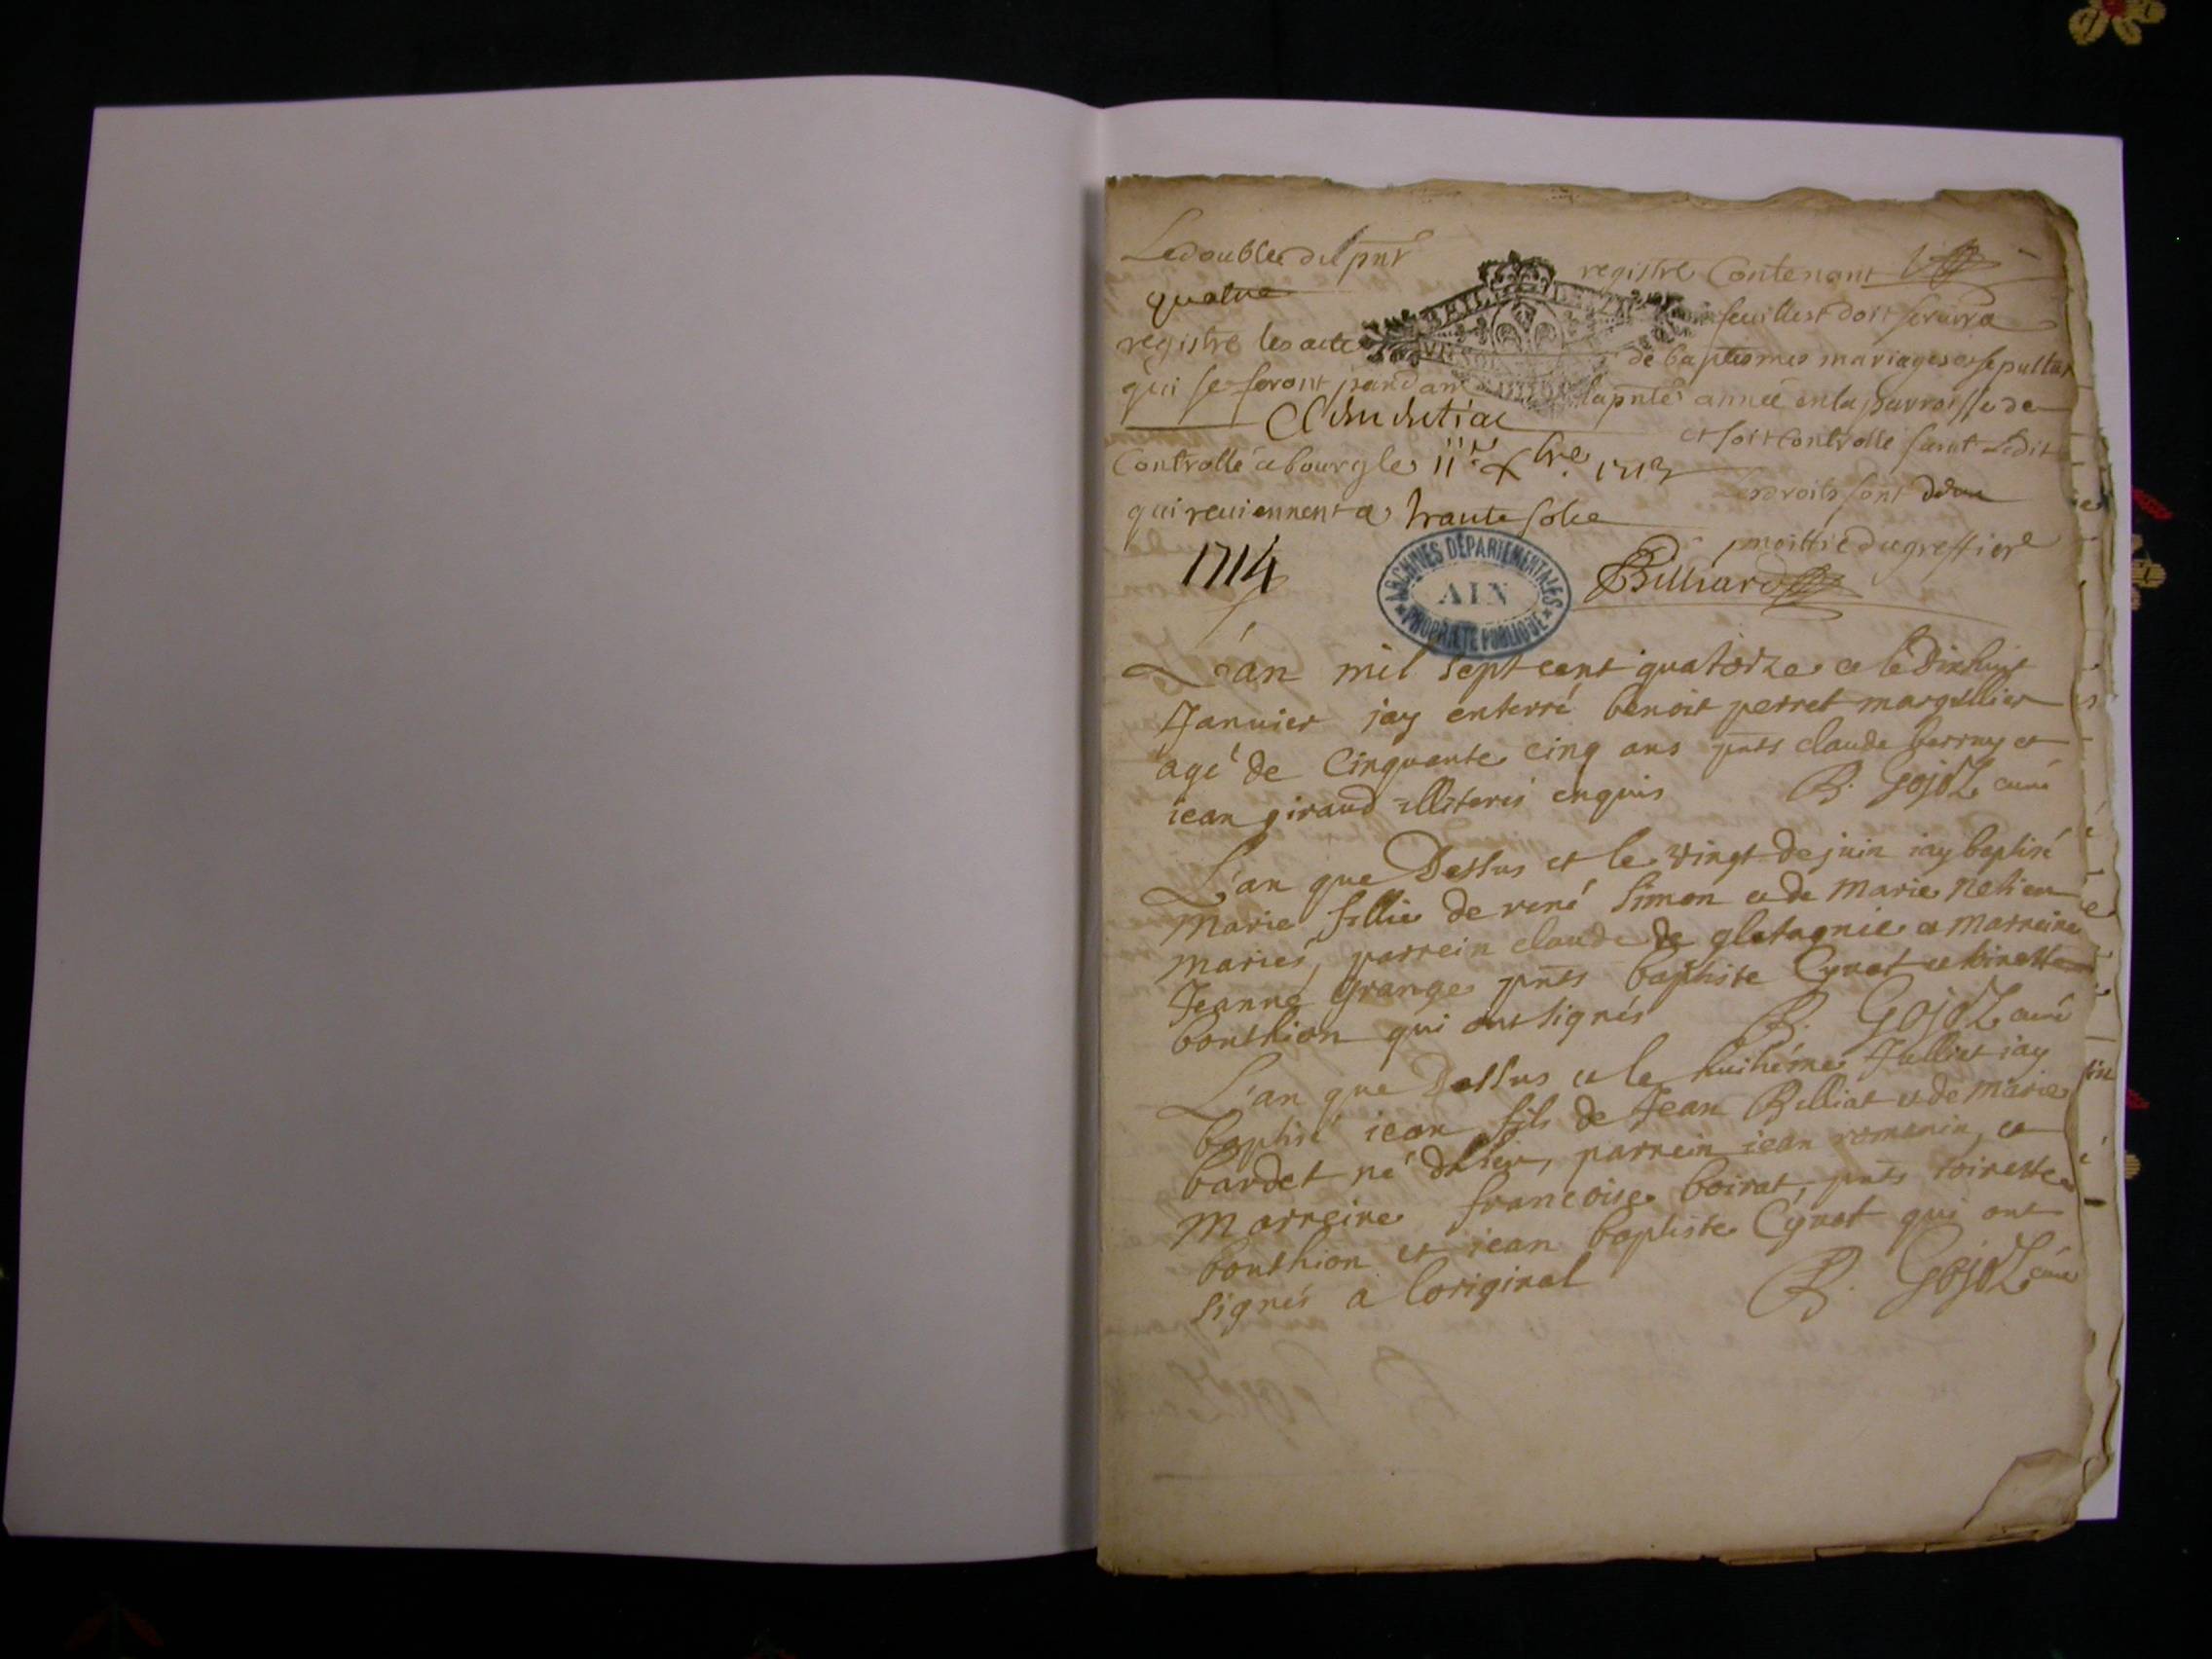 Le double du pnt registre Contenant
quatre feuillest doit servir a
registre les acte de baptesmes mariages et sepultur
qui se feront pendant la pnte année en la parroisse de
et soit controllé suivt Ledit
Controllé a bourg le 11e Xbre 1713
Les droits sont de
qui reuiennent a trante sols
moittié du greffier
1714
ARCHIVES DÉPARTEMENTALES
AIN
PROPRIÉTÉ PUBLIQUE
Billiard
L'an mil sept cent quatorze et le Dixhuit
Januier jay enterré benoit perret margillier
agé de Cinquante cinq ans pnts claude berruy et
iean giraud illiteris enquis B. Gojoz curé
L'an que Dessus et le vingt de juin iay baptisé
Marie fillie de rené Simon et de Marie
mariés, parrein claude de gletagnie et Marreine
Jeanne Grange pnts baptiste Cynot et
bonthion qui ont signés B. Gojoz curé
L'an que Dessus et le huitiéme Julliet iay
baptisé iean fils de Jean Billiat et de Marie
bardet né dhier, parrein iean romanin, et
Marreine francoise boirat, pnts toinette
bonthion et iean baptiste Cynot qui ont
signés a loriginal B. Gojoz curé